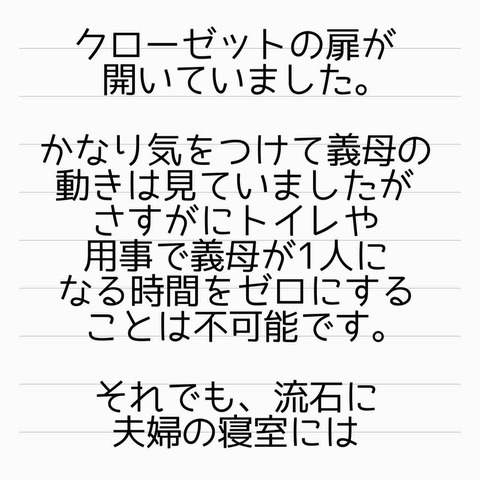 クローゼットの扉が
開いていました。
かなり気をつけて義母の
動きは見ていましたが
さすがにトイレや
用事で義母が1人に
なる時間をゼロにする
ことは不可能です。
それでも、流石に
夫婦の寝室には